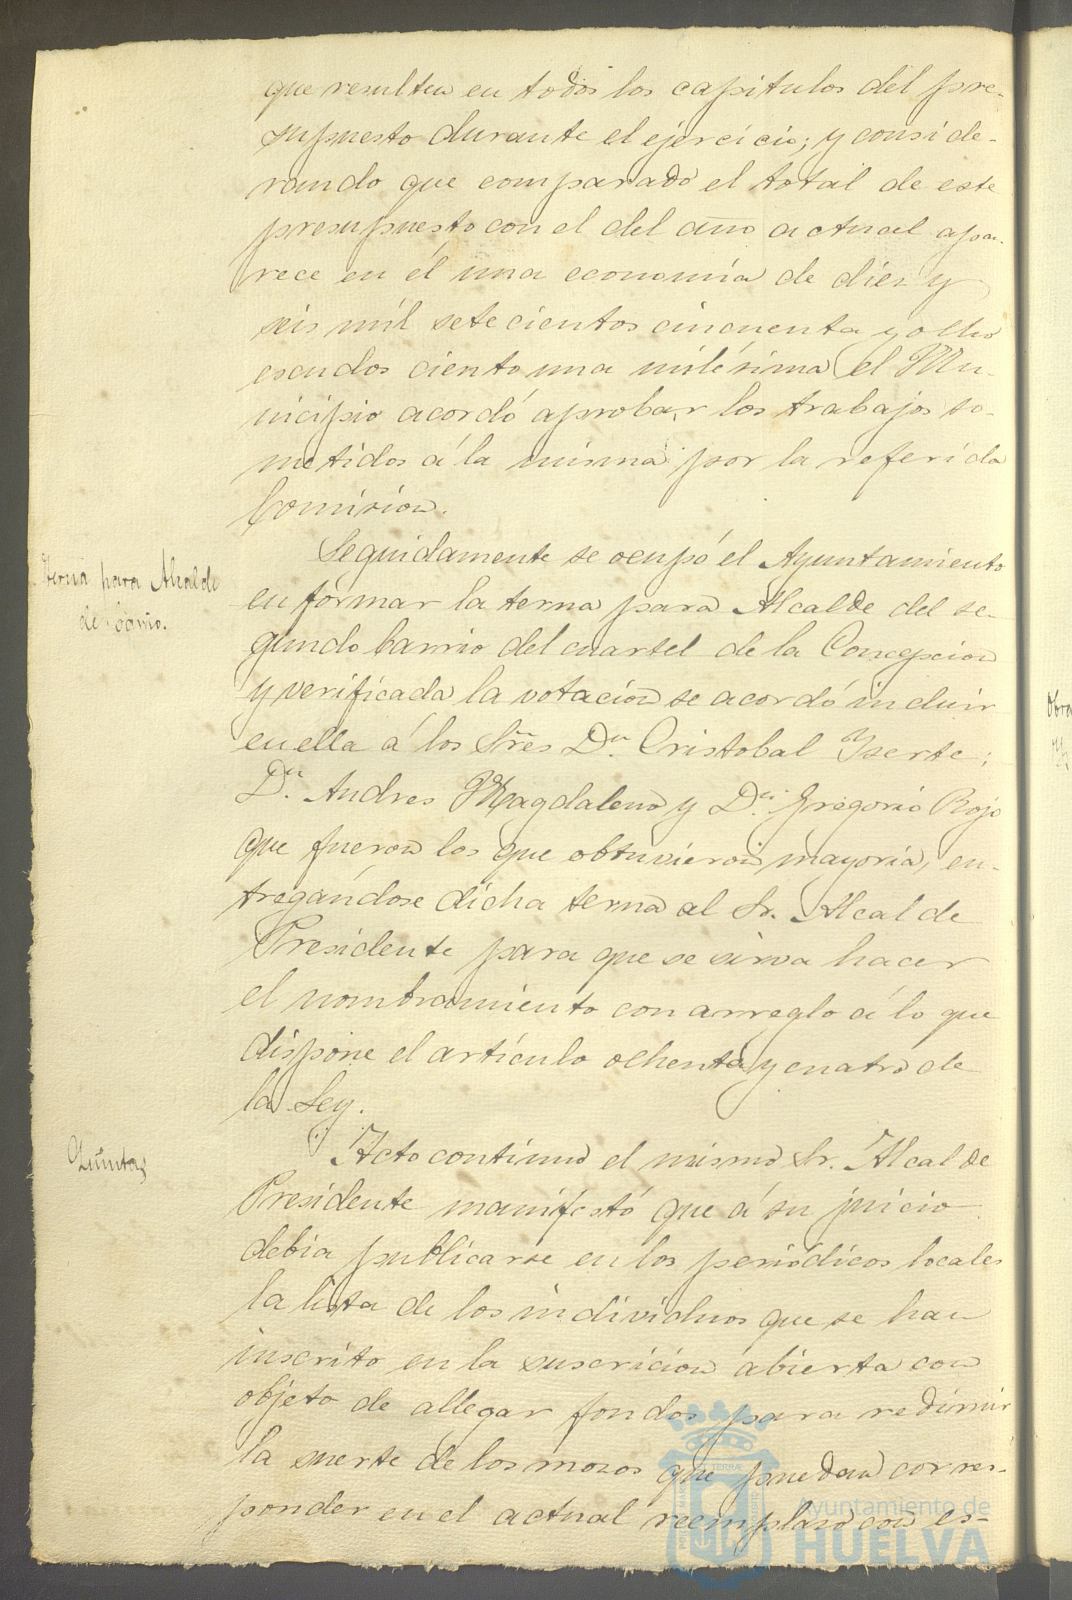 que resulten en todos los capitulos del pre-
supuesto durante el ejercicio; y conside-
rando que comparado el total de este
presupuesto con el del año actual apa-
rece en él una economía de diez y
seis mil setecientos cincuenta y ocho
escudos ciento una milésima el Mu-
nicipio acordó aprobar los trabajos so-
metidos á la misma por la referida
Comision.
Terna para Alcalde
de barrio.
Seguidamente se ocupó el Ayuntamiento
en formar la terna para Alcalde del se-
gundo barrio del cuartel de la Concepcion
y verificada la votacion se acordó incluir
en ella á los Sres Dn. Cristobal Yserte;
Dn. Andres Magdaleno y Dn. Gregorio Rojo
que fueron los que obtuvieron mayoria, en-
tregándose dicha terna al Sr. Alcalde
Presidente para que se sirva hacer
el nombramiento con arreglo á lo que
dispone el artículo ochenta y cuatro de
la Ley.
Quintas
Acto contínuo el mismo Sr. Alcalde
Presidente manifestó que á su juicio
debia publicarse en los periódicos locales
la lista de los individuos que se han
inscrito en la suscricion abierta con
objeto de allegar fondos para redimir
la suerte de los mozos que puedan corres-
ponder en el actual reemplazo con es-
Obra
Ayuntamiento de
HUELVA